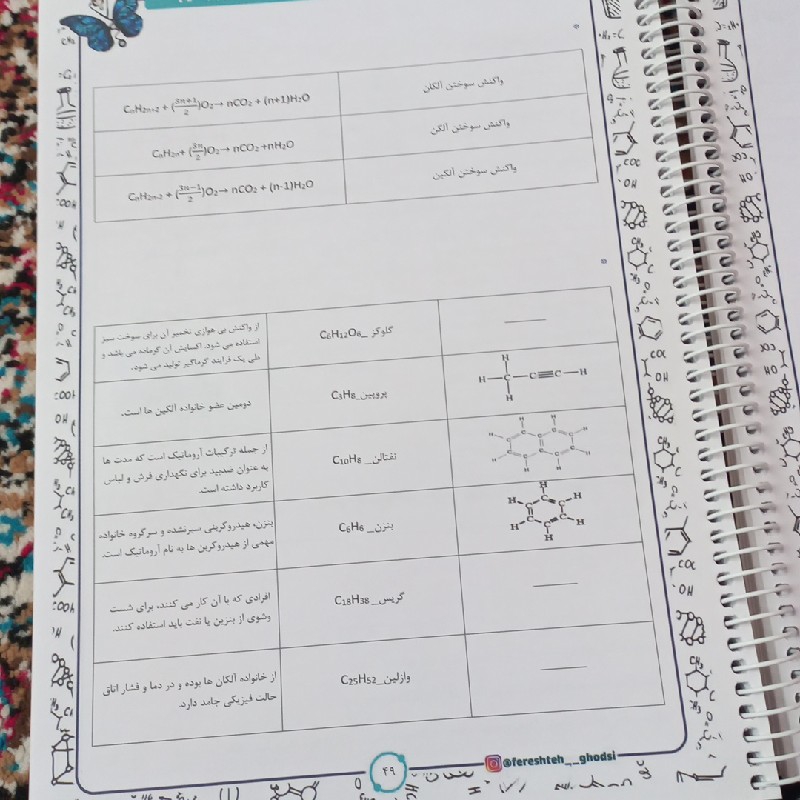 واکنش سوختن آلکان
CnH2n+2 + (3n+1/2)O2→ nCO2 + (n+1)H2O
واکنش سوختن آلکن
CnH2n+ (3n/2)O2→ nCO2 +nH2O
واکنش سوختن آلکین
CnH2n-2 + (3n−1/2)O2→ nCO2 + (n-1)H2O
گلوکز _C6H12O6
از واکنش بی هوازی تخمیر آن برای سوخت سبز
استفاده می شود. اکسایش آن گرماده می باشد و
طی یک فرایند گرماگیر تولید می شود.
H
H—C—C≡C—H
H
پروپین_C3H8
دومین عضو خانواده آلکین ها است.
نفتالن _C10H8
از جمله ترکیبات آروماتیک است که مدت ها
به عنوان ضدبید برای نگهداری فرش و لباس
کاربرد داشته است.
بنزن_ C6H6
بنزن، هیدروکربنی سیرنشده و سرگروه خانواده
مهمی از هیدروکربن ها به نام آروماتیک است.
گریس_C18H38
افرادی که با آن کار می کنند، برای شست
وشوی از بنزین یا نفت باید استفاده کنند.
وازلین_C25H52
از خانواده آلکان ها بوده و در دما و فشار اتاق
حالت فیزیکی جامد دارد.
۴۹
@fereshteh__ghodsi